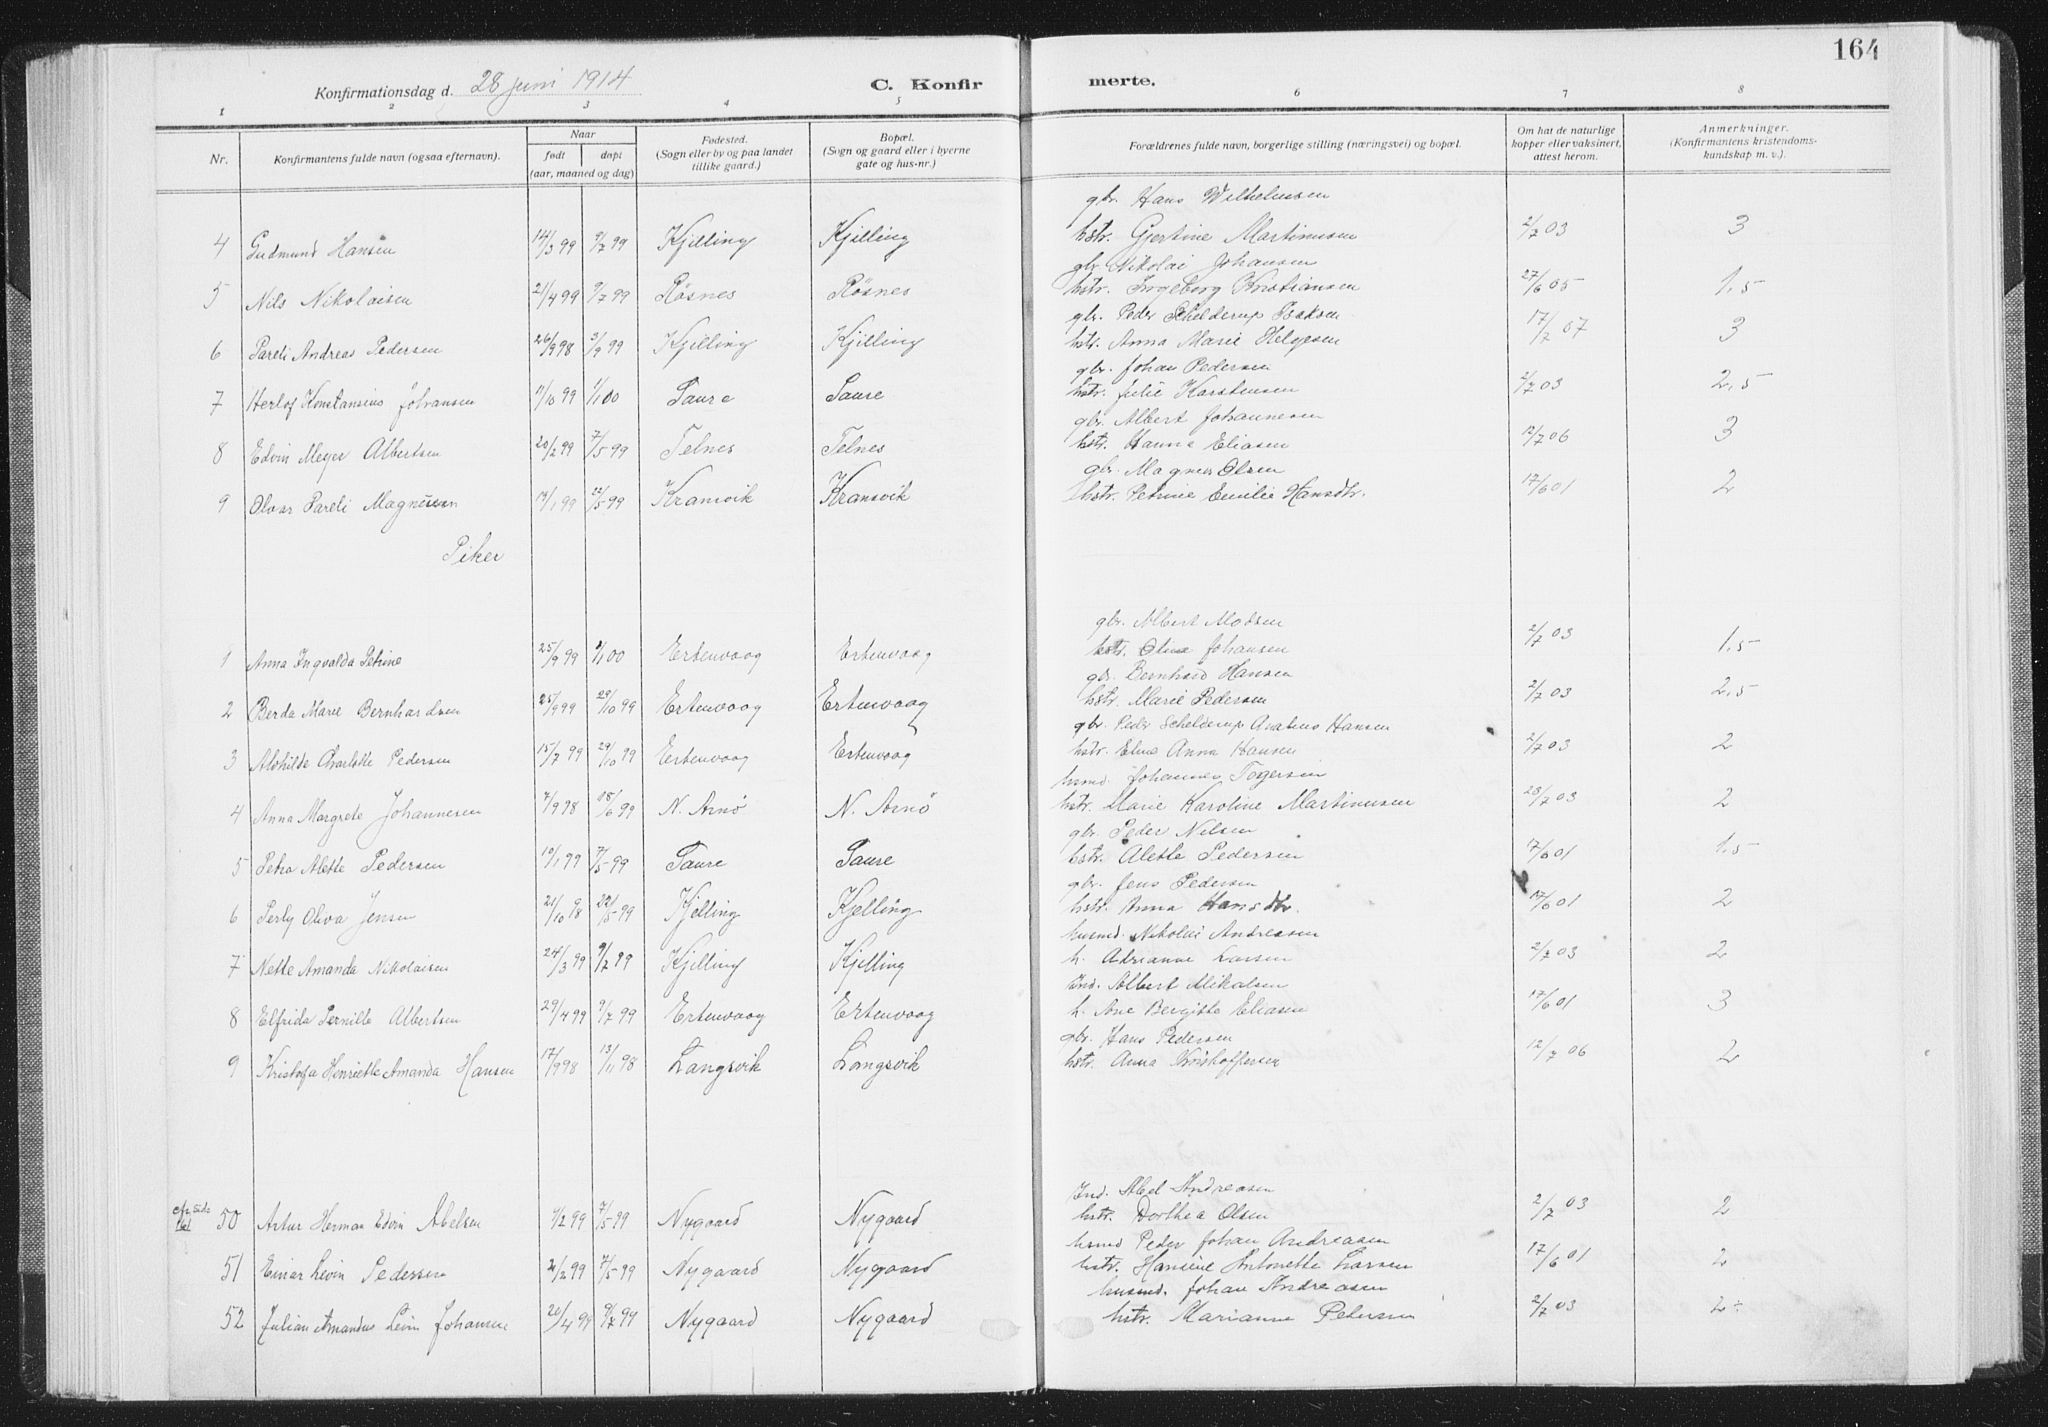 164
Konfirmationsdag d. 28 juni 1914 C. Konfirmerte.
1 2 3 4 5 6 7 8
Nr. Konfirmantens fulde navn (ogsaa efternavn). Naar født døpt (aar, maaned og dag) Fødested. (Sogn eller by og paa landet tillike gaard.) Bopæl. (Sogn og gaard eller i byerne gate og hus-nr.) Forældrenes fulde navn, borgerlige stilling (næringsvei) og bopæl. Om hat de naturlige kopper eller vaksinert, attest herom. Anmerkninger. (Konfirmantens kristendomskundskap m. v.).
gbr. Hans Wilhelmsen
4 Gudmund Hansen 14/3 99 9/7 99 Kjelling Kjelling hstr. Gjertine Martinusen 2/7 03 3
gbr. Nikolai Johansen
5 Nils Nikolaisen 21/4 99 9/7 99 Røsnes Røsnes hstr. Ingeborg Kristiansen 27/6 05 1,5
gbr. Peder Schelderup Isaksen
6 Pareli Andreas Pedersen 26/9 98 3/9 99 Kjelling Kjelling hstr. Anna Marie Helgesen 17/7 07 3
gbr. Johan Pedersen
7 Herlof Konstansius Johansen 11/10 99 1/1 00 Saure Saure hstr. Julie Karstensen 2/7 03 2,5
gbr. Albert Johannesen
8 Edvin Meyer Albertsen 20/2 99 7/5 99 Telnes Telnes hstr. Hanna Eliasen 12/7 06 3
gbr. Magnus Olsen
9 Olvar Pareli Magnussen 13/1 99 22/5 99 Kransvik Kransvik hstr. Petrine Emilie Hansdtr. 17/6 01 2
Piker
gbr. Albert Madsen
1 Anna Ingvalda Petrine 25/9 99 1/1 00 Ertenvaag Ertenvaag hstr. Oline Johansen 2/7 03 1,5
gbr. Bernhard Hansen
2 Berda Marie Bernhardsen 25/9 99 29/10 99 Ertenvaag Ertenvaag hstr. Marie Pedersen 2/7 03 2,5
gbr. Peder Schelderup Hansen
3 Alvhilde Charlotte Pedersen 15/7 99 29/10 99 Ertenvaag Ertenvaag hstr. Eline Anna Hansen 2/7 03 2
husmd. Johannes Togersen
4 Anna Margrete Johannesen 7/9 98 18/6 99 N. Arnø N. Arnø hstr. Marie Karoline Martinusen 28/7 03 2
gbr. Peder Nilsen
5 Petra Alette Pedersen 19/1 99 7/5 99 Saure Saure hstr. Alette Pedersen 17/6 01 1,5
gbr. Jens Pedersen
6 Perly Oliva Jensen 21/10 98 22/5 99 Kjelling Kjelling hstr. Anna Hansdtr. 17/6 01 2
husmd. Nikolai Andreasen
7 Nette Amanda Nikolaisen 24/3 99 9/7 99 Kjelling Kjelling h. Adrianne Larsen 2/7 03 2
Ind. Albert Mikalsen
8 Elfrida Pernille Albertsen 29/4 99 9/7 99 Ertenvaag Ertenvaag h. Ane Bergitte Eliasen 17/6 01 3
gbr. Hans Pedersen
9 Kristofa Henriette Amanda Hansen 17/9 98 13/11 98 Langsvik Langsvik hstr. Anna Kristoffersen 12/7 06 2
Ind. Abel Andreasen
50 Artur Herman Edvin Abelsen 1/2 99 7/5 99 Nygaard Nygaard hstr. Dorthea Olsen 2/7 03 2
husmd Peder Johan Andreasen
51 Einar Levin Pedersen 2/2 99 7/5 99 Nygaard Nygaard hstr. Hansine Antonette Larsen 17/6 01 2
husmd. Johan Andreasen
52 Julian Amandus Levin Johansen 20/4 99 9/7 99 Nygaard Nygaard hstr. Marianne Pedersen 2/7 03 2÷